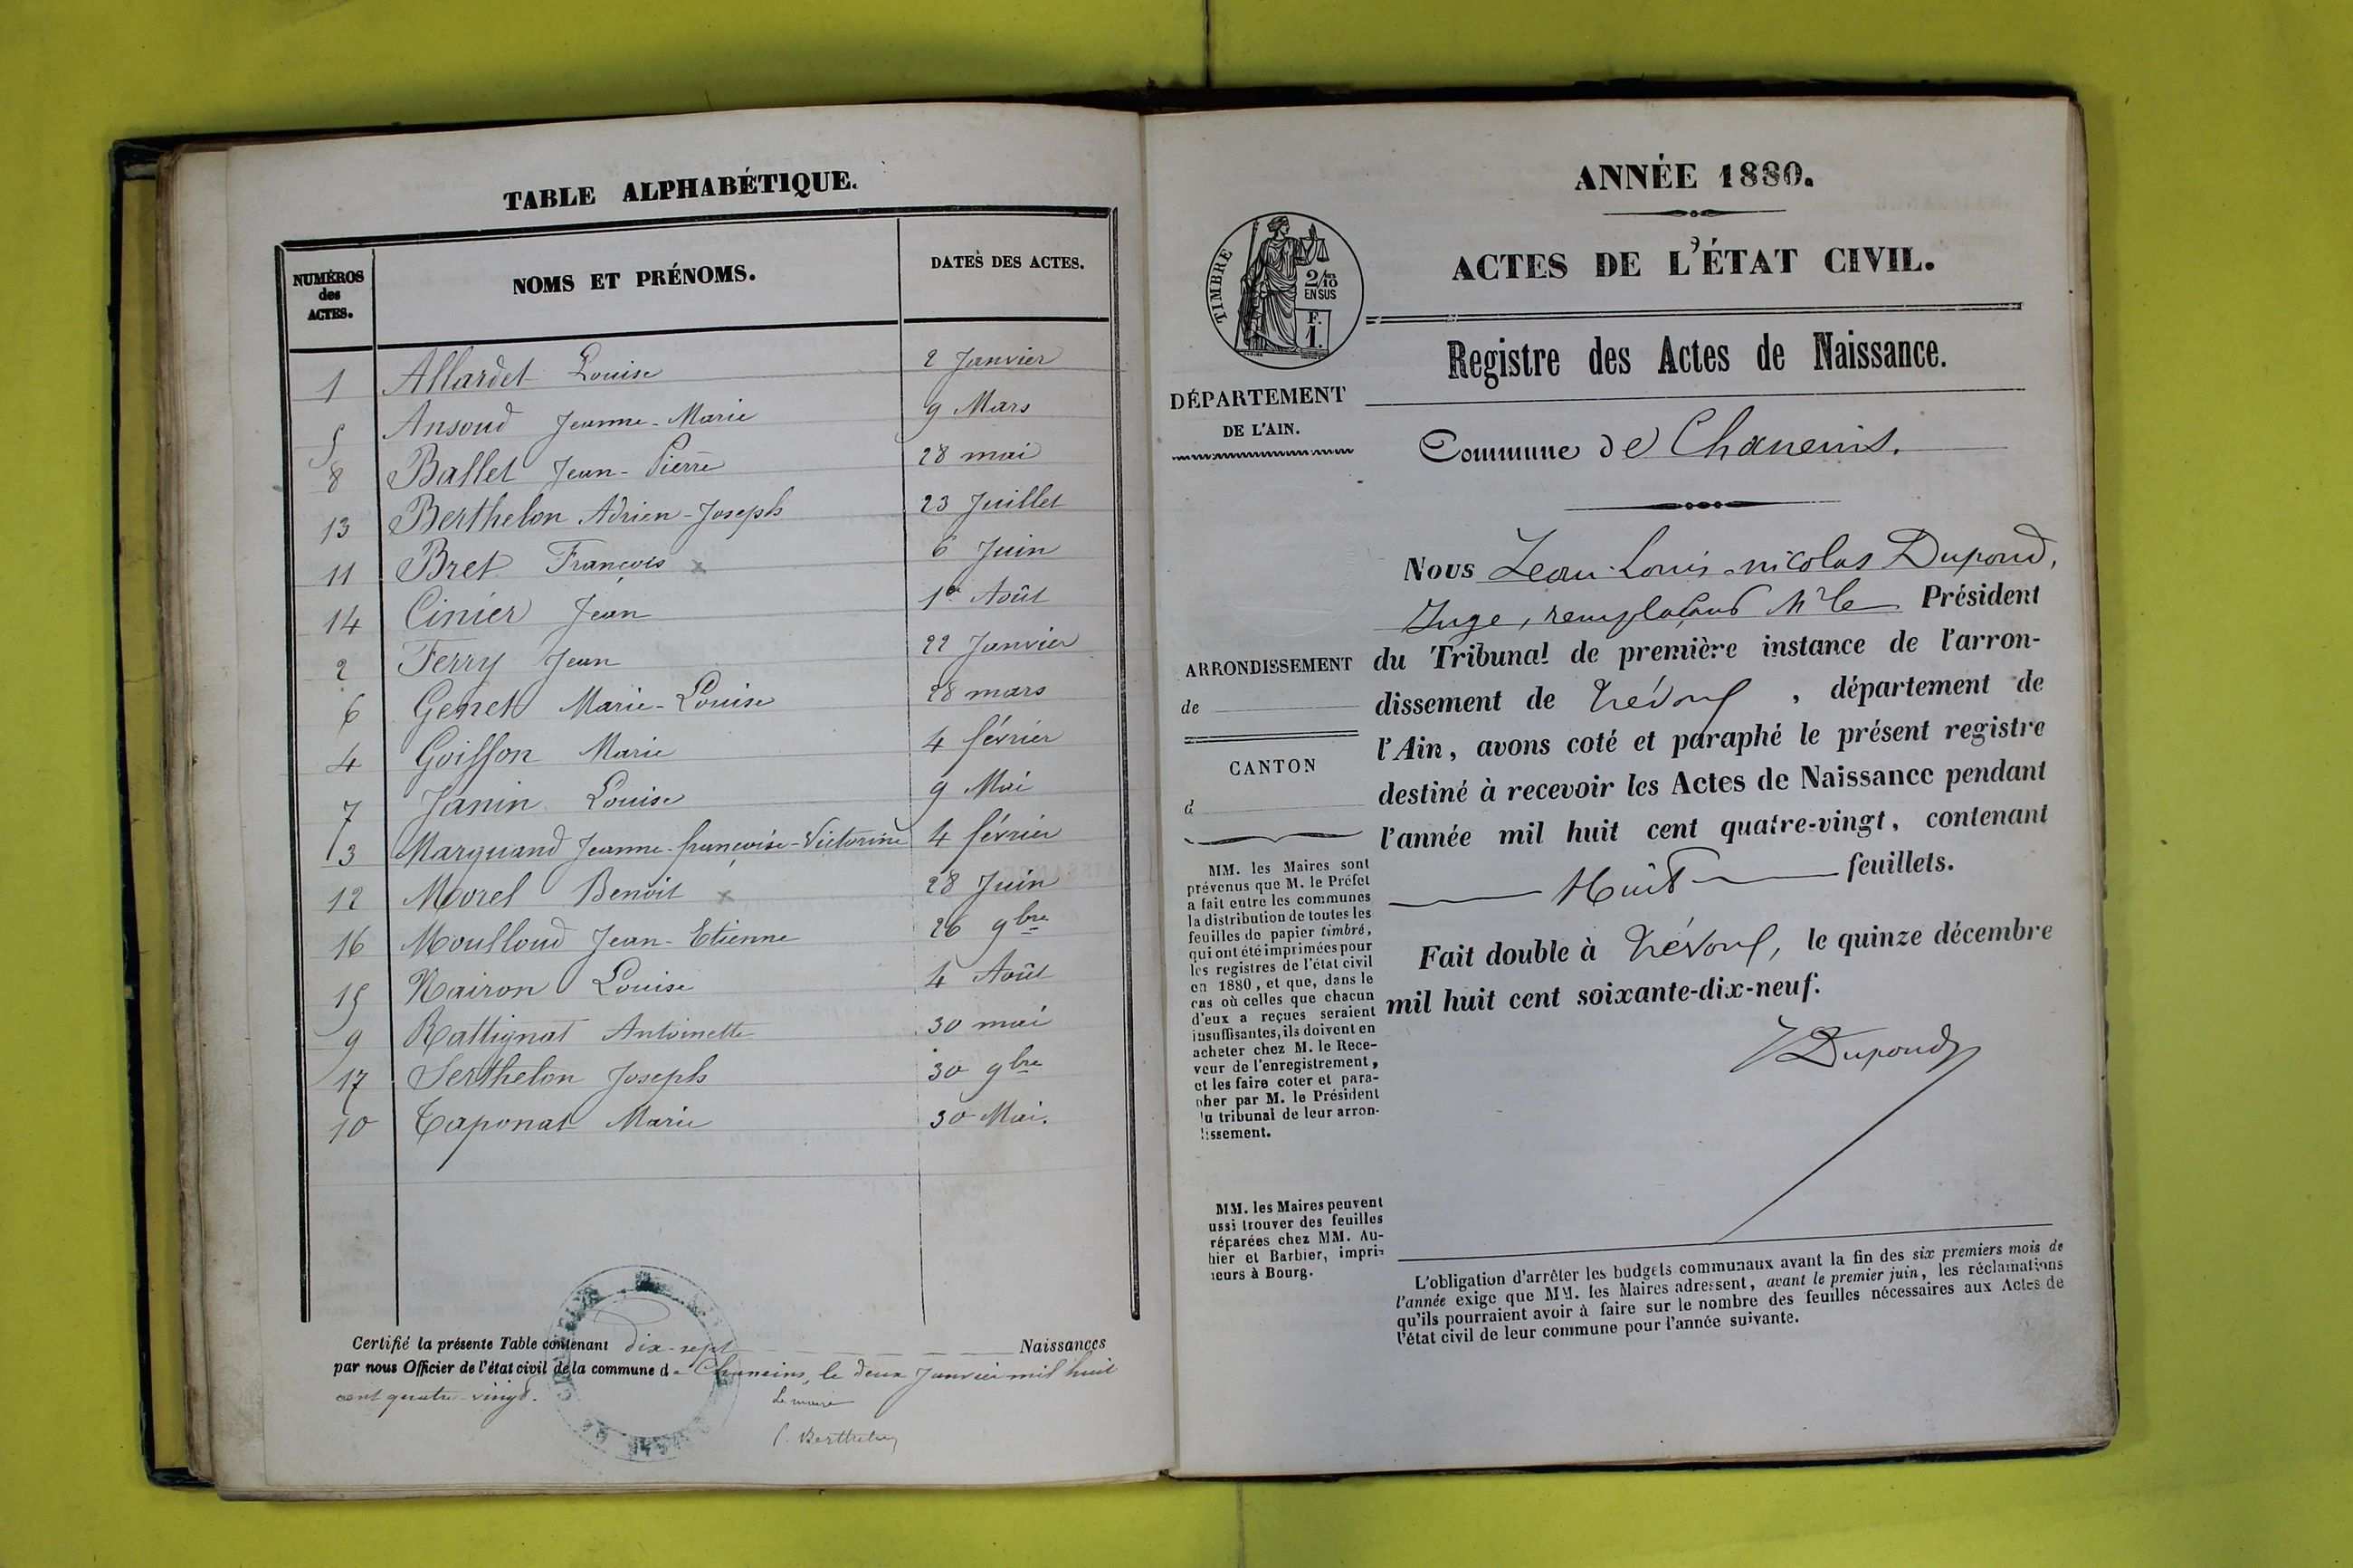 TABLE ALPHABÉTIQUE.
NUMÉROS des ACTES. NOMS ET PRÉNOMS. DATES DES ACTES.
1 Allardet Louise 2 Janvier
5 Ansoud Jeanne-Marie 9 Mars
8 Ballet Jean-Pierre 28 mai
13 Berthelon Adrien-Joseph 23 Juillet
11 Bret François x 6 Juin
14 Cinier Jean 1er Août
2 Ferry Jean 22 Janvier
6 Genet Marie-Louise 28 mars
4 Goiffon Marie 4 février
7 Janin Louise 9 Mai
3 Marquand Jeanne-françoise-Victorine 4 février
12 Morel Benoit x 28 Juin
16 Moulloud Jean-Etienne 26 9bre
15 Nairon Louise 4 Août
9 Rattignat Antoinette 30 mai
17 Serthelon Joseph 30 9bre
10 Taponat Marie 30 Mai.
Certifié la présente Table contenant dix-sept Naissances
par nous Officier de l'état civil de la commune de Chaneins, le deux Janvier mil huit
cent quatre-vingt.
Le maire
Berthelon
ANNÉE 1880.
ACTES DE L'ÉTAT CIVIL.
TIMBRE
2/10 EN SUS
F. 1.
Registre des Actes de Naissance.
DÉPARTEMENT
DE L'AIN.
Commune de Chaneins.
Nous Jean-Louis-nicolas Dupond,
Juge, remplaçant Mr le Président
du Tribunal de première instance de l'arron-
dissement de Trévoux, département de
l'Ain, avons coté et paraphé le présent registre
destiné à recevoir les Actes de Naissance pendant
l'année mil huit cent quatre-vingt, contenant
Huit feuillets.
Fait double à Trévoux, le quinze décembre
mil huit cent soixante-dix-neuf.
Dupond
ARRONDISSEMENT
de
CANTON
d
MM. les Maires sont
prévenus que M. le Préfet
a fait entre les communes
la distribution de toutes les
feuilles de papier timbré,
qui ont été imprimées pour
les registres de l'état civil
en 1880, et que, dans le
cas où celles que chacun
d'eux a reçues seraient
insuffisantes, ils doivent en
acheter chez M. le Rece-
veur de l'enregistrement,
et les faire coter et para-
pher par M. le Président
du tribunal de leur arron-
issement.
MM. les Maires peuvent
ussi trouver des feuilles
réparées chez MM. Au-
hier et Barbier, impri-
eurs à Bourg.
L'obligation d'arrêter les budgets communaux avant la fin des six premiers mois de
l'année exige que MM. les Maires adressent, avant le premier juin, les réclamations
qu'ils pourraient avoir à faire sur le nombre des feuilles nécessaires aux Actes de
l'état civil de leur commune pour l'année suivante.